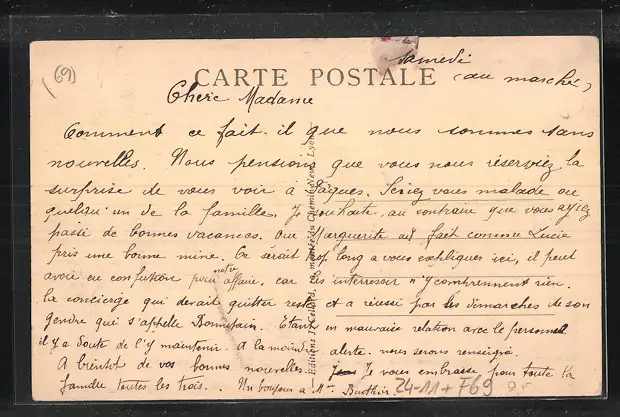 (69)
Samedi
CARTE POSTALE
(au marché)
Chère Madame
Comment ce fait-il que nous sommes sans
nouvelles. Nous pensions que vous nous réserviez la
surprise de vous voir à Pâques. Seriez vous malade ou
quelqu'un de la famille. Je souhaite, au contraire que vous ayiez
passé de bonnes vacances. Que Marguerite ait fait comme Lucie
pris une bonne mine. Ce serait trop long a vous expliquer ici, il peut
avoir eu confusion pour notre affaire, car les interresser n'y comprennent rien.
la concierge qui devait quitter reste et a réussi par les démarches de son
gendre qui s'appelle. Etant en mauvaise relation avec le personnel
il y a doute de l'y maintenir. A la moindre alerte. nous serons renseigné.
A bientôt de vos bonnes nouvelles. Je vous embrasse pour toute la
famille toutes les trois.. Un bonjour a Mr
Editions J. Cellard, Lyon
24-11+F69